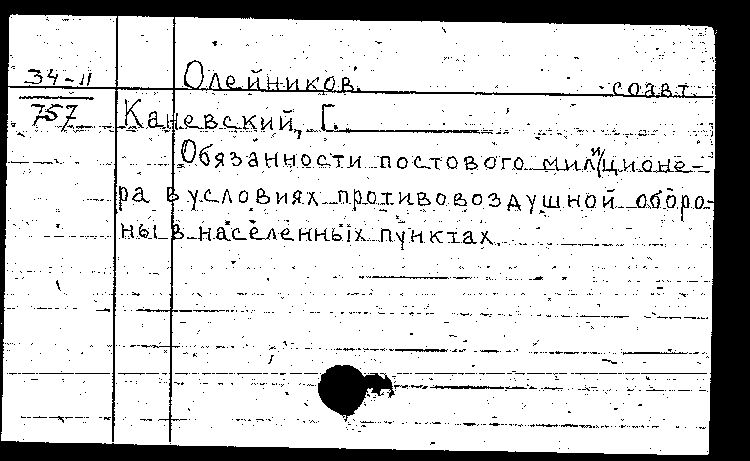 34-11
757
Олейников. соавт.
Каневский, Г.
Обязанности постового милиционе-
ра в условиях противовоздушной оборо-
ны в населенных пунктах.